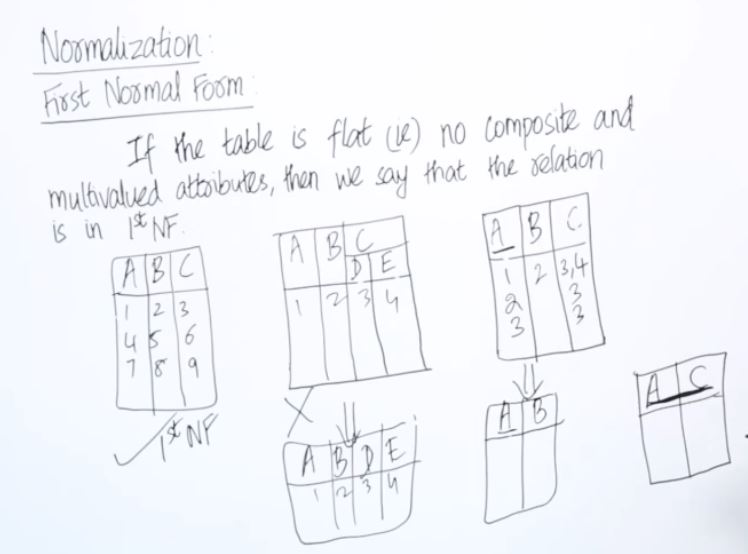 Normalization:
First Normal Form:
If the table is flat (ie) no composite and
multivalued attributes, then we say that the relation
is in 1st NF.
A B C
1 2 3
4 5 6
7 8 9
1st NF
A B C
D E
1 2 3 4
A B D E
1 2 3 4
A B C
1 2 3,4
2 3
3 3
A B
A C